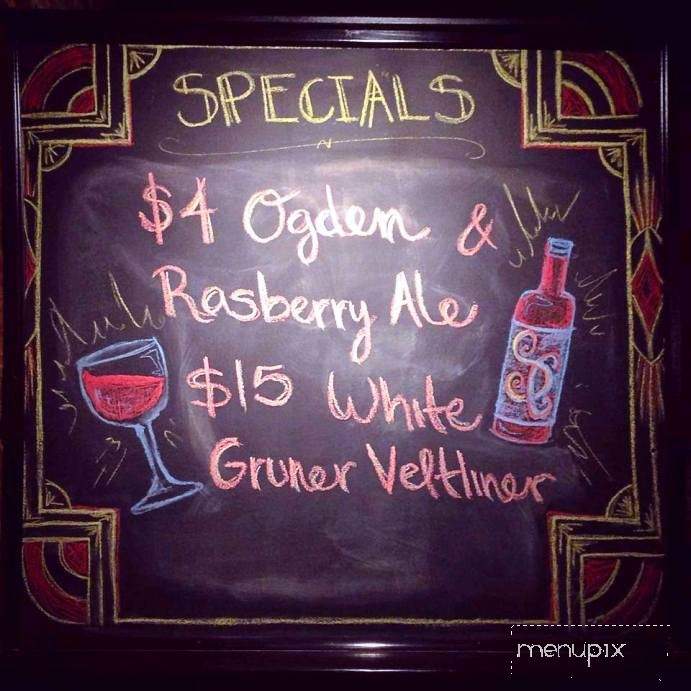 SPECIALS
$4 Ogden &
Rasberry Ale
$15 White
Gruner Veltliner
menupix